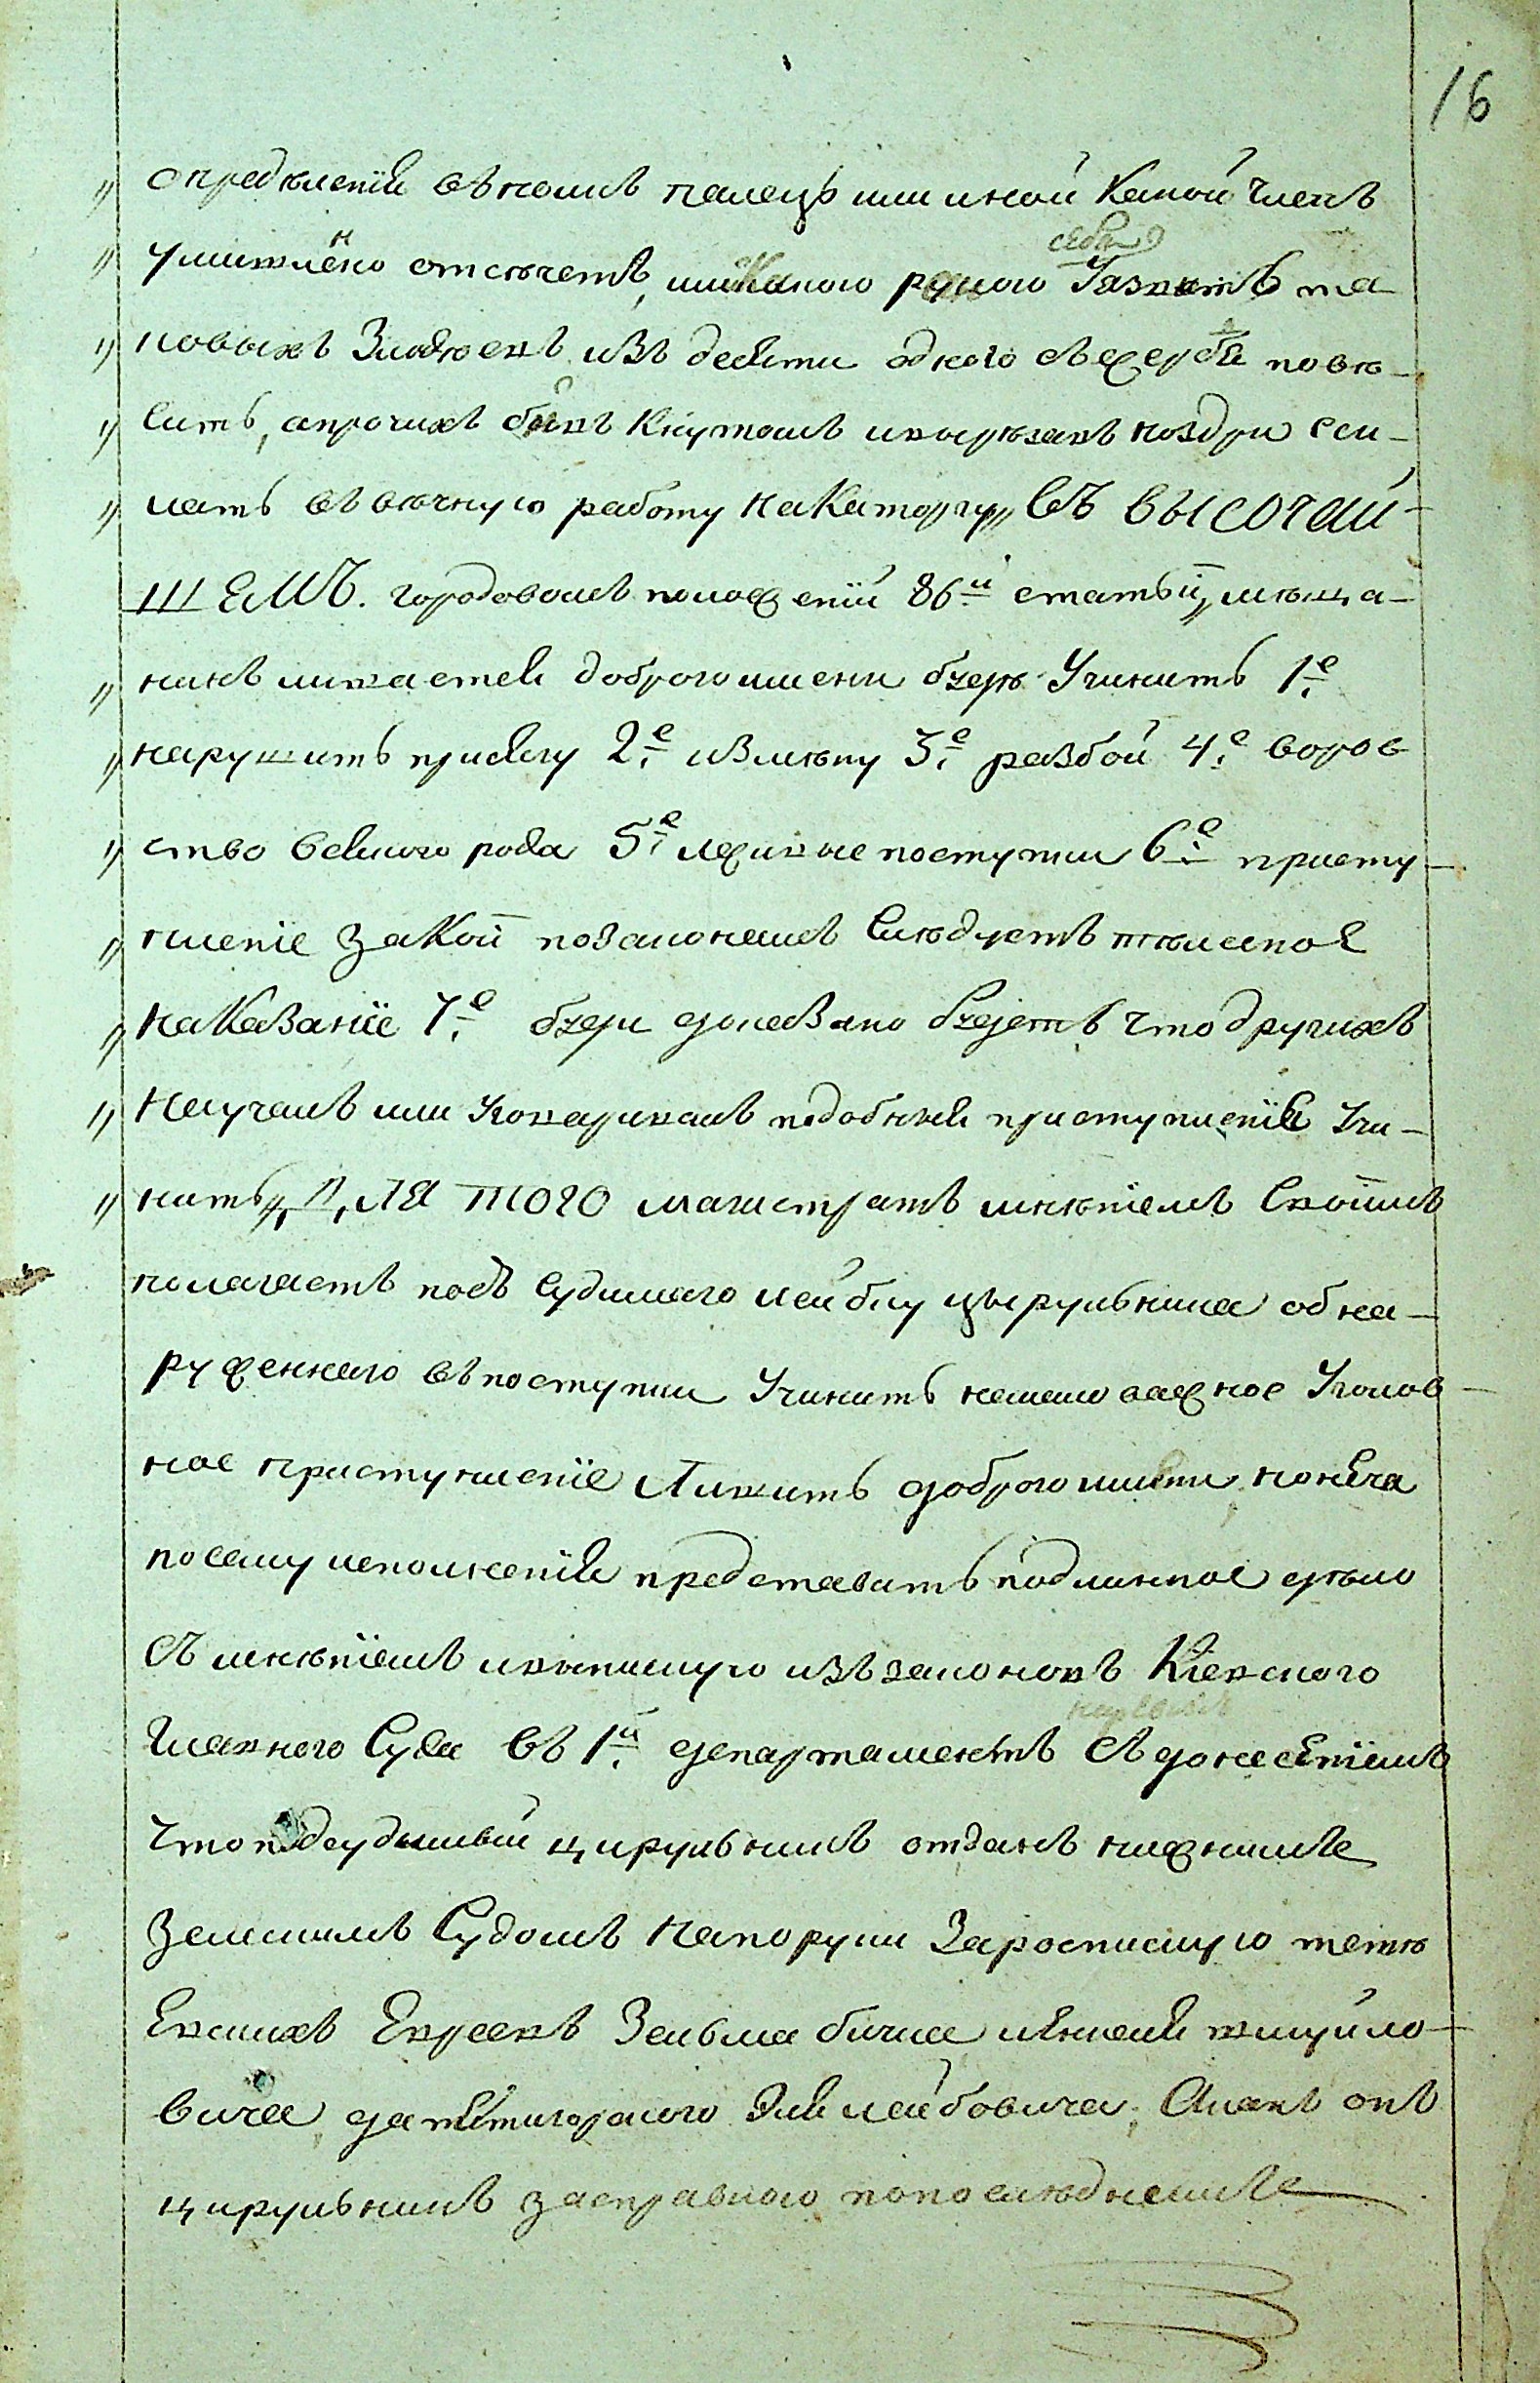 16
определенїя въ комъ палецъ или иной какой членъ
умышлено отсѣчетъ, или какого раною себя уязвитъ та
ковыхъ злодѣевъ изъ десяти одного съ жеребья повѣ-
сить, а прочихъ бивъ кнутомъ и вырѣзавъ ноздри ссы-
лать въ вѣчную работу на каторгу„ въ ВЫСОЧАЙ-
ШЕМЪ. городовомъ положенїи 86й. статьи„ мѣща-
нинъ лишается доброго имени буде учинитъ 1е.
нарушитъ присягу 2е. измѣну 3е. разбой 4е. воров
ство всякого рода 5е. лживые поступки 6е. престу-
пленїе за кои по законамъ слѣдуетъ тѣлесное
наказанїе 7е. буде доказано будетъ что другихъ
научалъ или уговаривалъ подобныя преступленїя учи-
нить„ ДЛЯ ТОГО магистратъ мнѣнїемъ своимъ
полагаетъ подъ судимаго лейбу цырульника обна-
руженнаго въ поступки учинить немаловажное уголов-
ное преступленїе лишить доброго имени,
по сему исполненїя представить подлинное дѣло
съ мнѣнїемъ и выпискую изъ законовъ Кїевского
Главного Суда въ 1й. департаментъ съ донесенїемъ
что подсудимый цирульникъ отданъ нижнимъ
земскимъ Судомъ на поруки за роспискую тетѣ
евскихъ Евреевъ Зельма бичка
вича, да пятигорского Эля лейбовича, а какъ онъ
цирульникъ